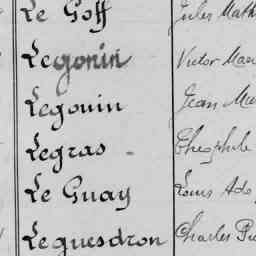 Le Goff Jules Math
Legonin Victor Mar
Legouin Jean Mar
Legras Théophile
Le Guay Louis Ado
Leguesdron Charles Pie